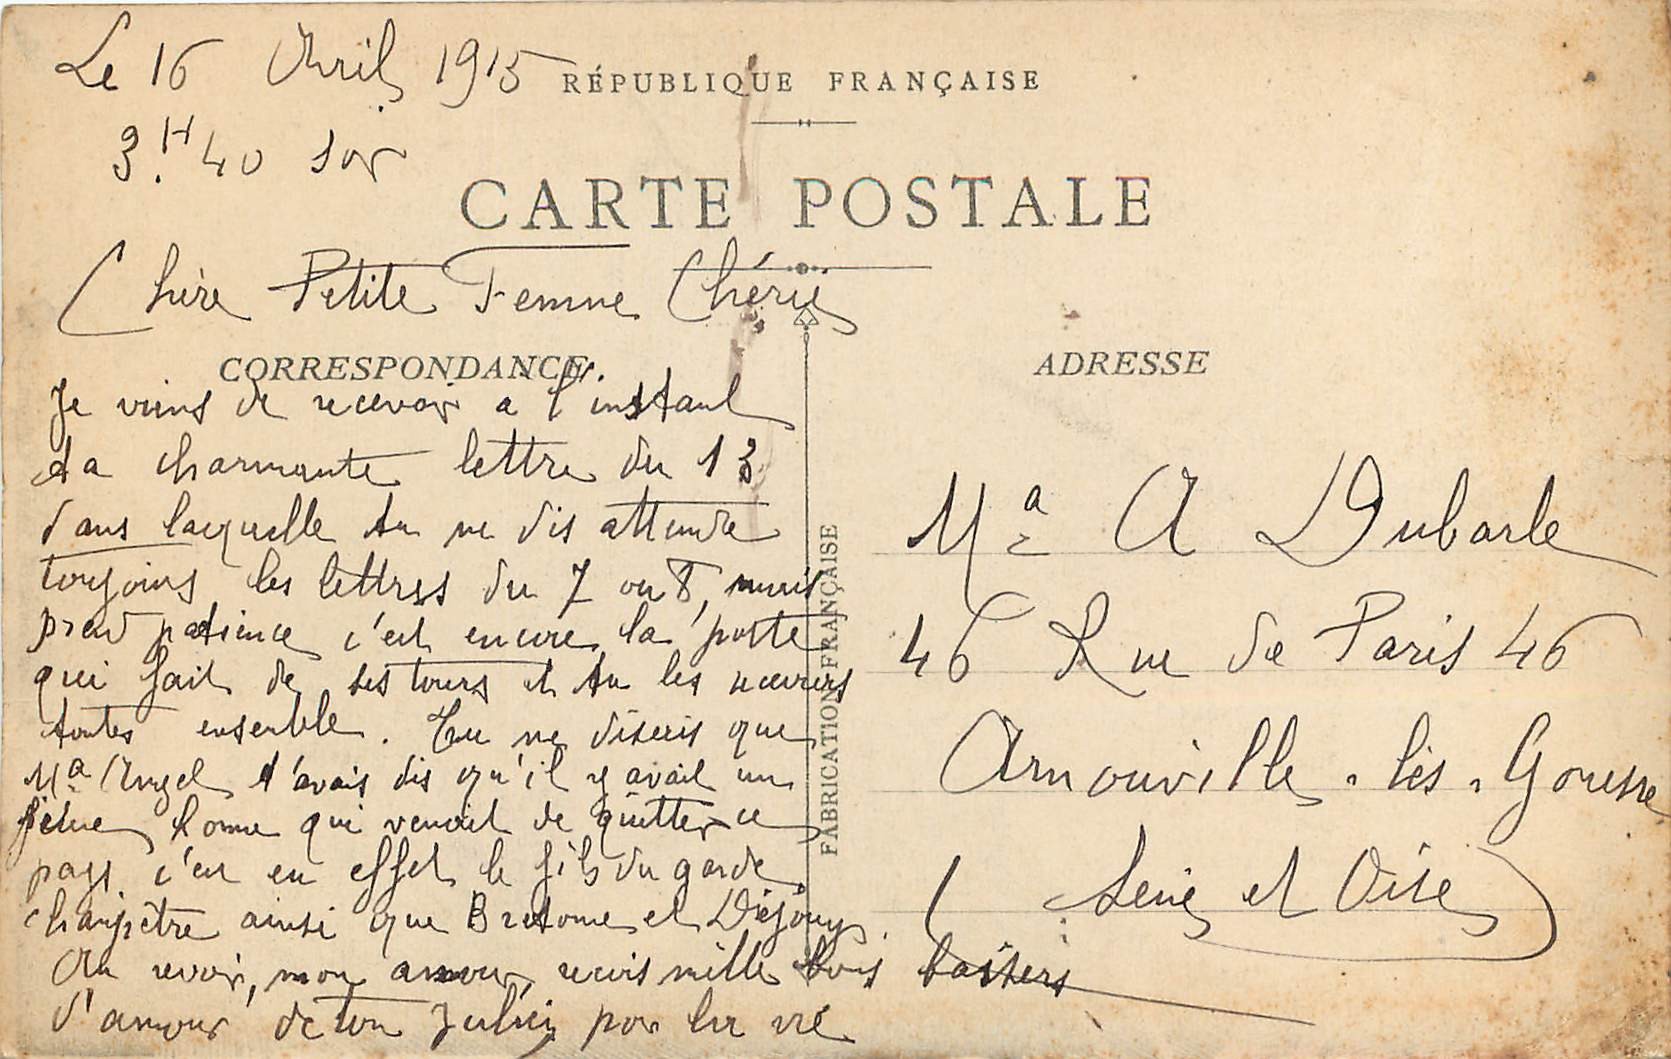 Le 16 Avril 1915
RÉPUBLIQUE FRANÇAISE
3H40 soir
CARTE POSTALE
Chère Petite Femme Chérie
CORRESPONDANCE
ADRESSE
Je viens de recevoir a l'instant
ta charmante lettre du 13
dans laquelle tu me dis attendre
toujours les lettres du 7 ou 8, mais
prend patience c'est encore la poste
qui fait de ses tours et tu les recevras
toutes ensemble. Tu me diseais que
Ma Angel t'avais dis qu'il y avait un
jeune homme qui venait de quitter ce
pays c'est en effet le fils du garde
champêtre ainsi que Bretome et Dejouy.
Au revoir, mon amour, recois mille bons baisers
d'amour de ton Julien pour la vie
Ma A Dubarle
46 Rue de Paris 46
Arnouville-lès-Gonesse
(Seine et Oise)
FABRICATION FRANÇAISE